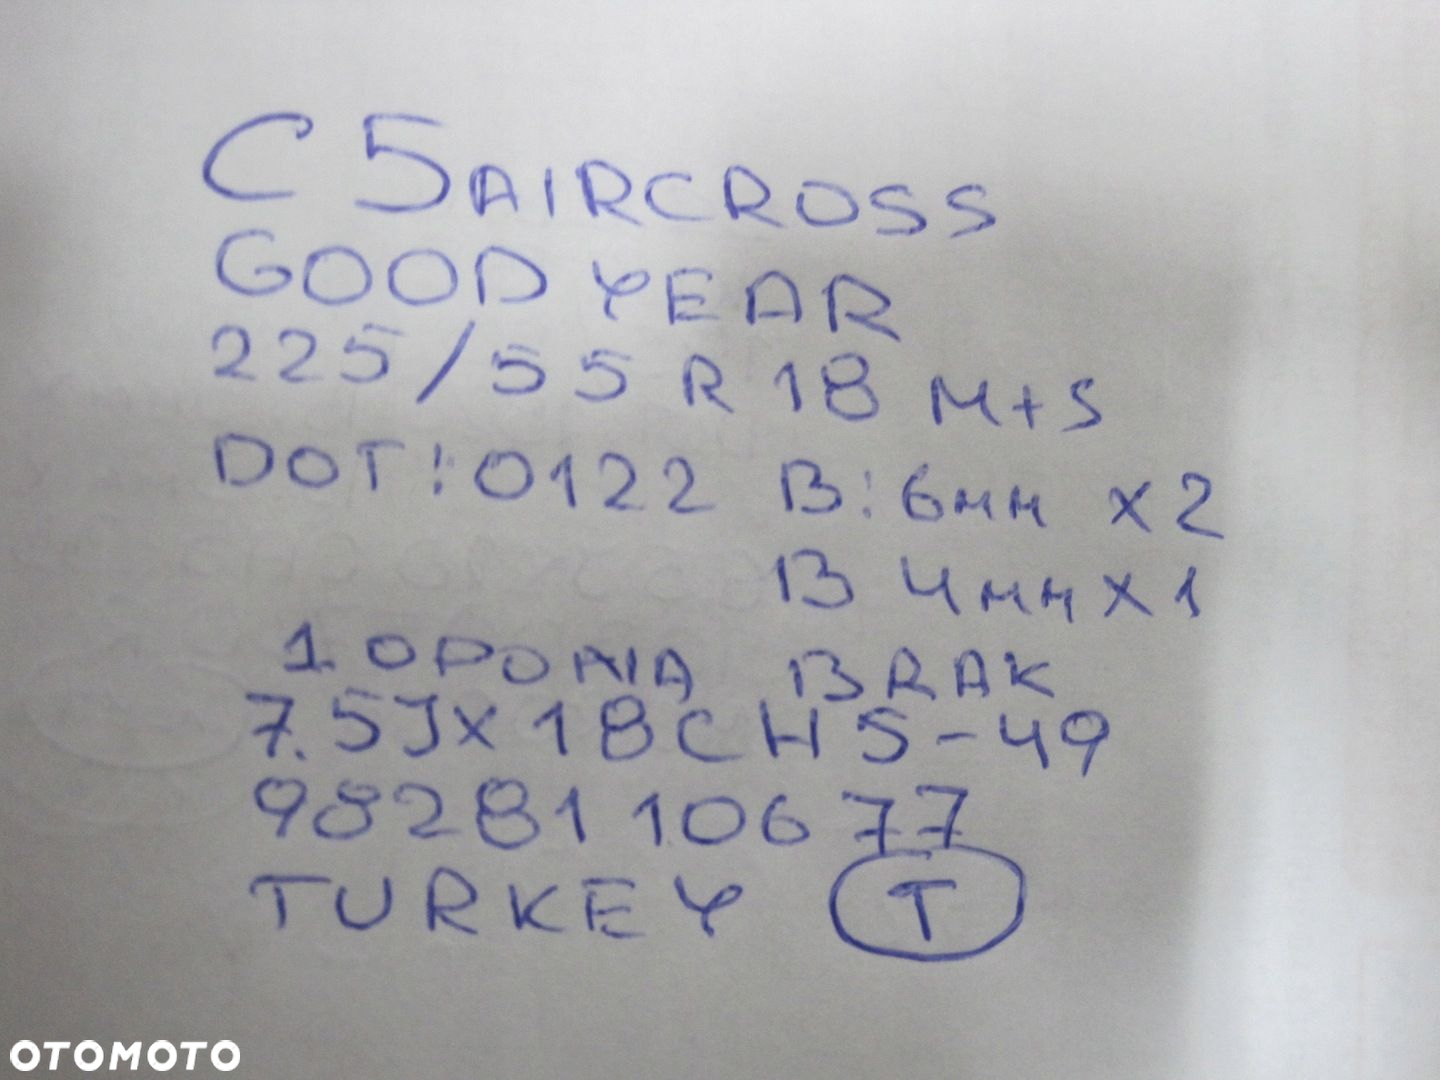 C5AIRCROSS
GOODYEAR
225/55 R 18 M+S
DOT: 0122 B: 6mm x2
B 4mm x1
1 OPONA BRAK
7.5Jx18CH5-49
9828110677
TURKEY T
OTOMOTO